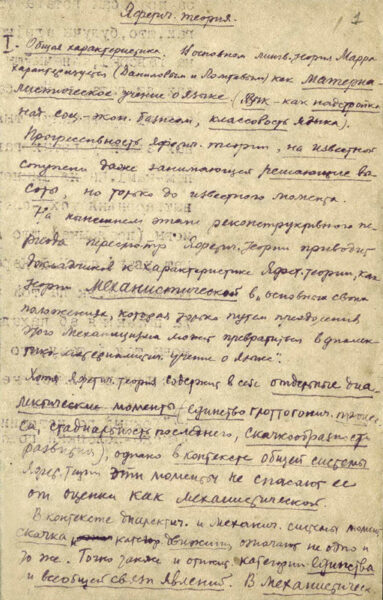 Яфетич. теория.
1
I. Общая характеристика. В основном лингв. теория Марра
характеризуется (Даниловым и Ломтевым) как материа-
листическое учение о языке (язык - как надстройка
над соц.-экон. базисом, классовость языка).
Прогрессивность яфетич. теории, на известной
ступени даже занимающая решающие вы-
соты, но только до известного момента.
На нынешнем этапе реконструктивного пе-
риода пересмотр Яфетич. теории приводит
докладчиков к характеристике Яфет. теории, как
теории механистической в "основных своих
положениях, которая только путем преодоления
этого механицизма может превратиться в диалек-
тико-материалистич. учение о языке".
Хотя Яфетич. теория содержит в себе отдельные диа-
лектические моменты (единство глоттогонич. процес-
са, стадиальность последнего, скачкообразность
развития), однако в контексте общей системы
Яфет. теории эти моменты не спасают ее
от оценки как механистической.
В контексте диалектич. и механич. системы момент
скачка движения означают не одно и
то же. Точно также и отнош. категории единства
и всеобщей связи явлений. В механистическ